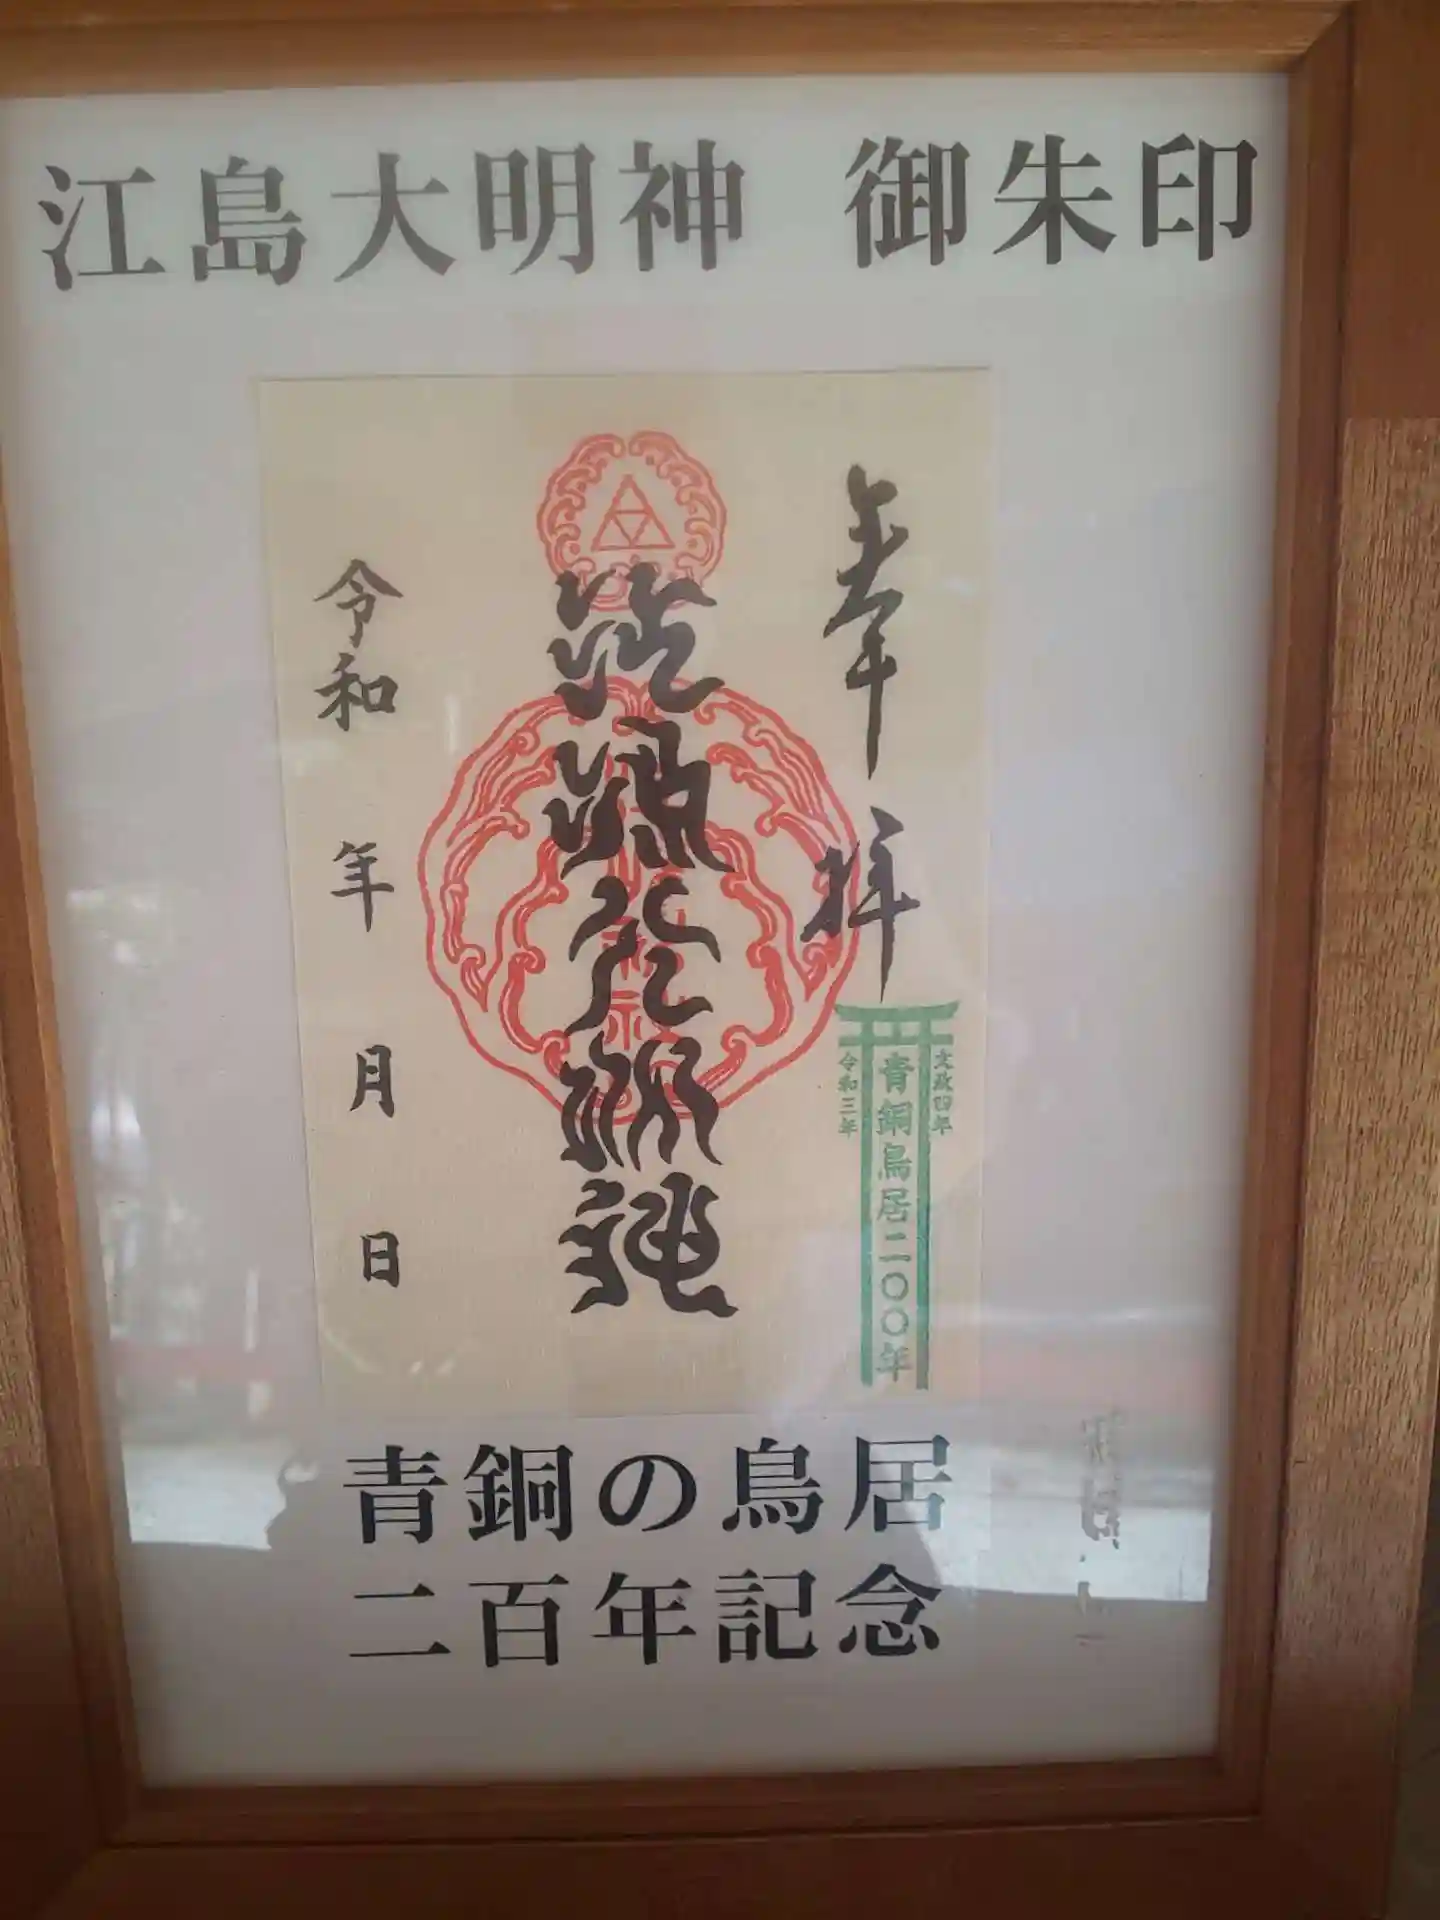 江島大明神 御朱印
奉拝
文政四年
青銅鳥居二〇〇年
令和三年
令和 年 月 日
青銅の鳥居
二百年記念